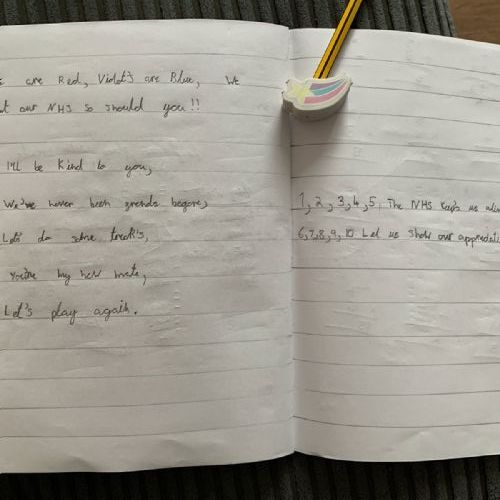 are Red, Violet's are Blue, We
our NHS so should you!!
I'll be Kind to you,
We've never been friends before,
Let's do some
You're my new mate,
Let's play again.
1, 2, 3, 4, 5, The NHS keeps us
6, 7, 8, 9, 10 Let us show our